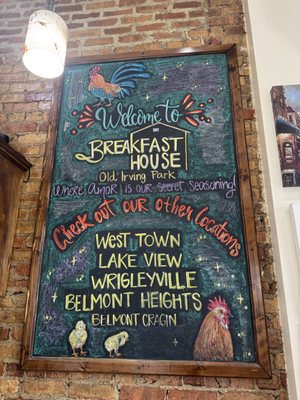 Welcome to
Breakfast
House
Old Irving Park
Where Amor is our Secret Seasoning!
Check out our other locations
West Town
Lake View
Wrigleyville
Belmont Heights
Belmont Cragin